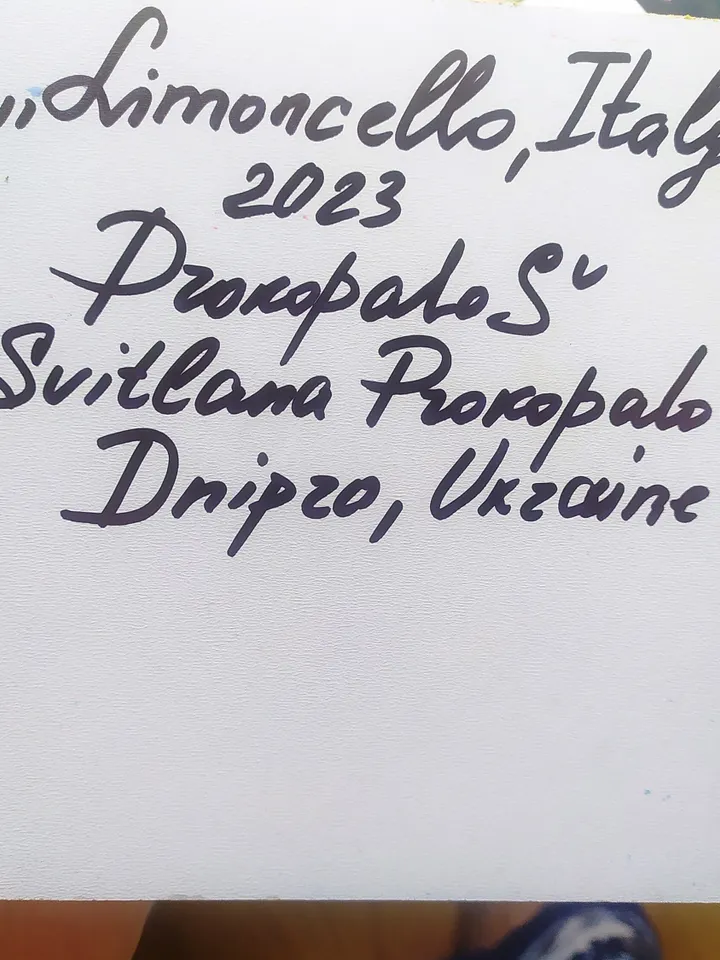 „Limoncello, Italy
2023
Prokopalo S"
Svitlana Prokopalo
Dnipro, Ukraine